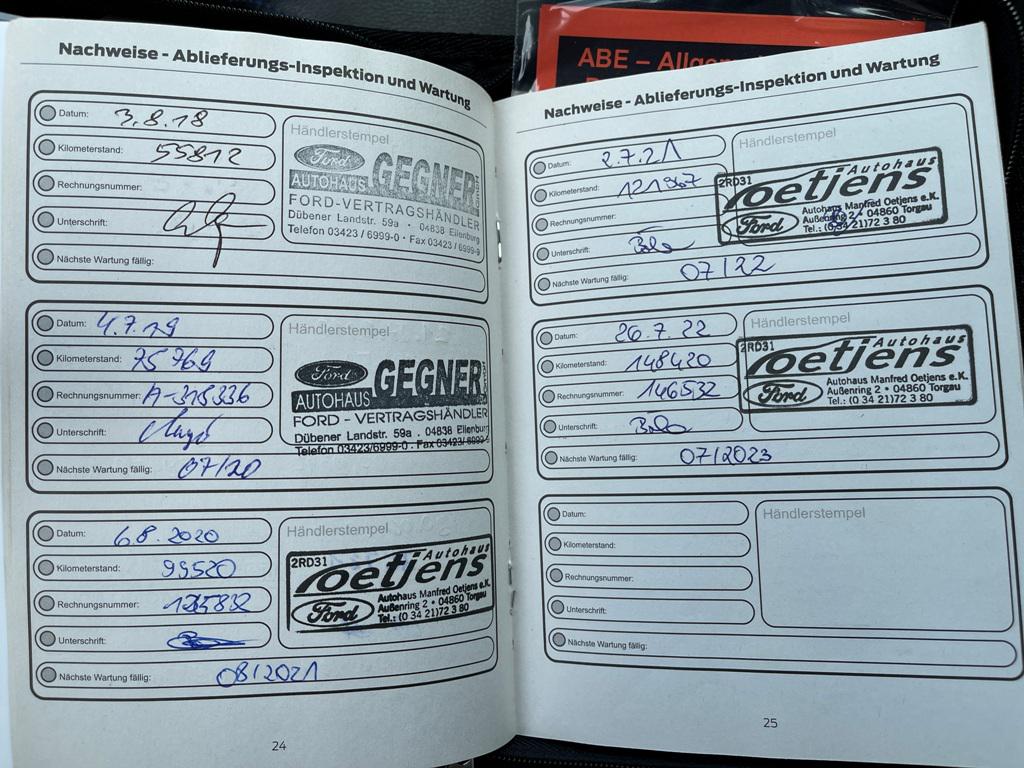 ABE – Allgem
Nachweise - Ablieferungs-Inspektion und Wartung
Datum: 3.8.18
Kilometerstand: 55812
Rechnungsnummer:
Unterschrift:
Nächste Wartung fällig:
Händlerstempel
Ford
AUTOHAUS GEGNER
FORD-VERTRAGSHÄNDLER
Dübener Landstr. 59a · 04838 Eilenburg
Telefon 03423 / 6999-0 · Fax 03423 / 6999-
Datum: 4.7.19
Kilometerstand: 75769
Rechnungsnummer: A-315336
Unterschrift:
Nächste Wartung fällig: 07/20
Händlerstempel
Ford
AUTOHAUS GEGNER
FORD - VERTRAGSHÄNDLER
Dübener Landstr. 59a . 04838 Eilenburg
Telefon 03423/6999-0 . Fax 03423/ 6999-
Datum: 6.8.2020
Kilometerstand: 99520
Rechnungsnummer:
Unterschrift:
Nächste Wartung fällig: 08/2021
Händlerstempel
2RD31
Autohaus
oetjens
Ford
Autohaus Manfred Oetjens e.K.
Außenring 2 • 04860 Torgau
Tel.: (0 34 21)72 3 80
24
Nachweise - Ablieferungs-Inspektion und Wartung
Datum: 2.7.21
Kilometerstand: 121867
Rechnungsnummer:
Unterschrift:
Nächste Wartung fällig: 07/22
Händlerstempel
2RD31
Autohaus
oetjens
Ford
Autohaus Manfred Oetjens e.K.
Außenring 2 • 04860 Torgau
Tel.: (0 34 21)72 3 80
Datum: 26.7.22
Kilometerstand: 148420
Rechnungsnummer: 146532
Unterschrift:
Nächste Wartung fällig: 07/2023
Händlerstempel
2RD31
Autohaus
oetjens
Ford
Autohaus Manfred Oetjens e.K.
Außenring 2 • 04860 Torgau
Tel.: (0 34 21)72 3 80
Datum:
Kilometerstand:
Rechnungsnummer:
Unterschrift:
Nächste Wartung fällig:
Händlerstempel
25